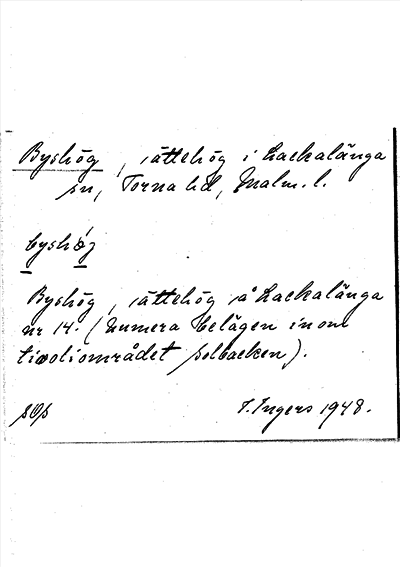 Byshög, ättehög i Lackalänga
sn, Torna hd, Malm. l.
byshø̨g
Byshög, ättehög å Lackalänga
nr 14. (Numera belägen inom
tivoliområdet Solbacken).
I. Ingers 1948.